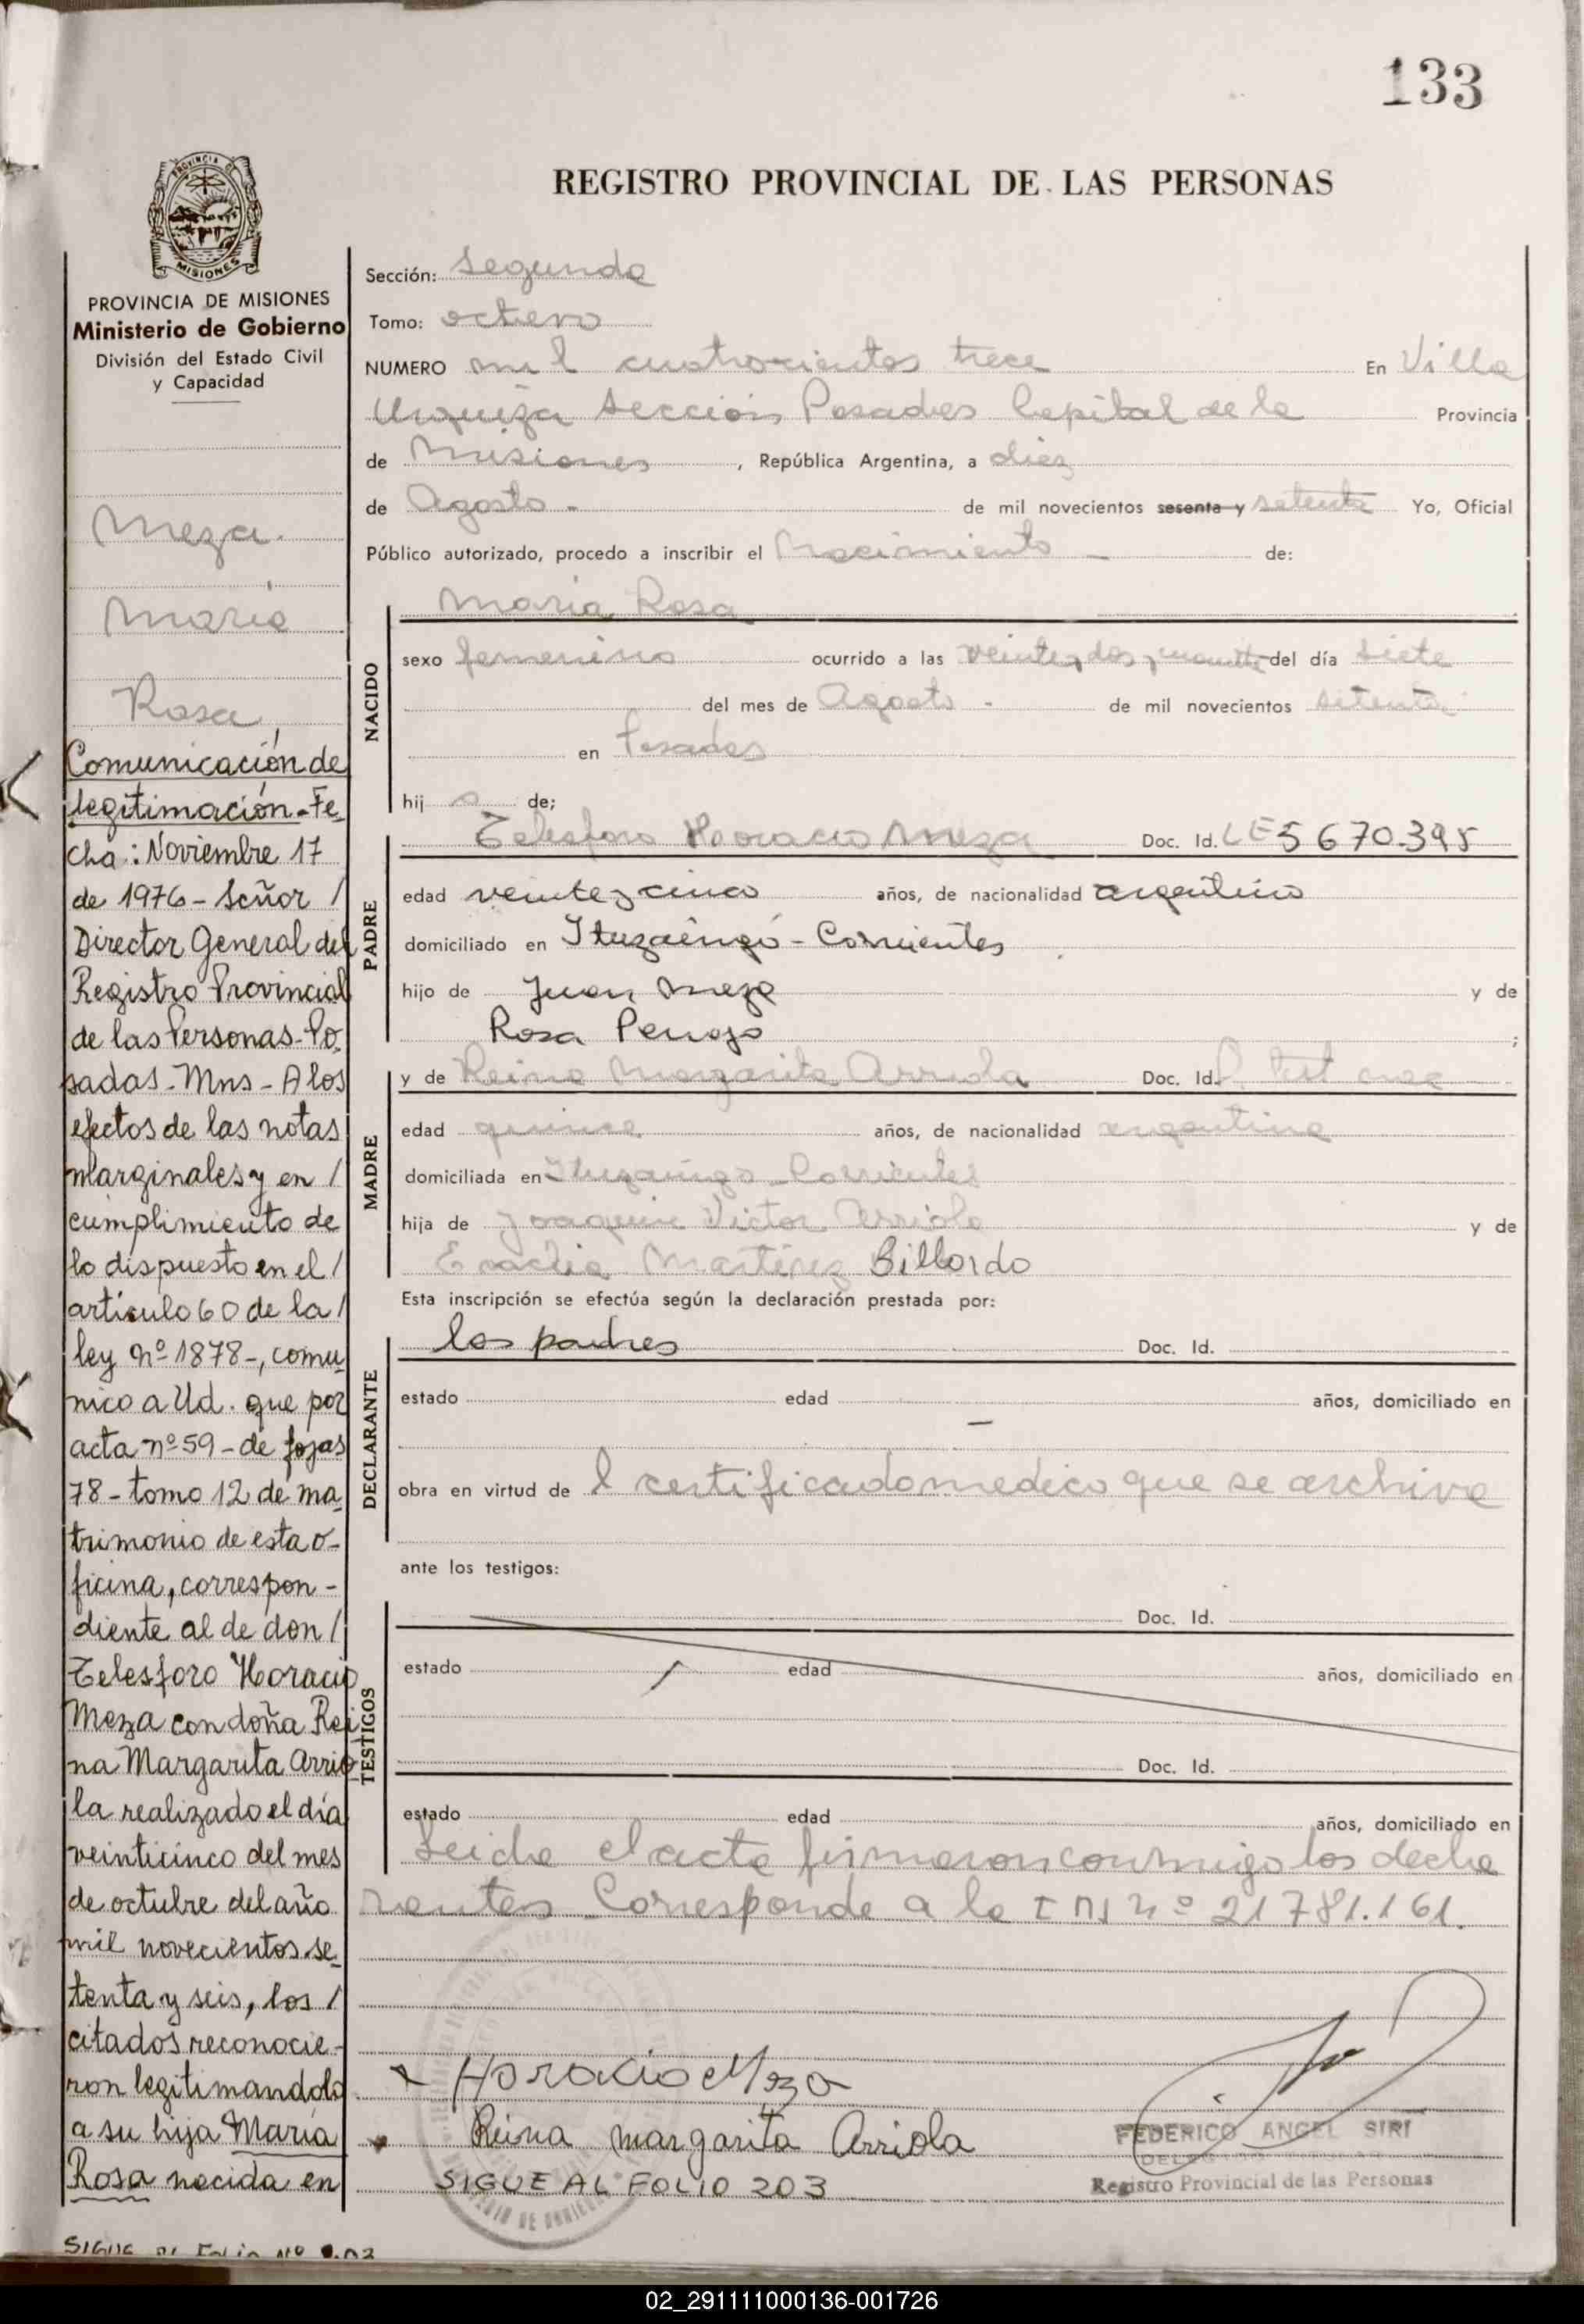 133
REGISTRO PROVINCIAL DE LAS PERSONAS
PROVINCIA DE
MISIONES
PROVINCIA DE MISIONES
Ministerio de Gobierno
División del Estado Civil
y Capacidad
Meza
María
Rosa
Comunicación de
legitimación - Fe-
cha: Noviembre 17
de 1976 - Señor /
Director General del
Registro Provincial
de las Personas - Po-
sadas - Mns - A los
efectos de las notas
marginales y en /
cumplimiento de
lo dispuesto en el /
artículo 60 de la /
ley nº 1878 -, comu-
nico a Ud. que por
acta nº 59 - de fojas
78 - tomo 12 de ma-
trimonio de esta o-
ficina, correspon-
diente al de don /
Telesforo Horacio
Meza con doña Rei-
na Margarita Arrio-
la realizado el día
veinticinco del mes
de octubre del año
mil novecientos se-
tenta y seis, los /
citados reconocie-
ron legitimandola
a su hija María
Rosa nacida en
Sección: Segunda
Tomo: octavo
NUMERO mil cuatrocientos trece En Villa
Urquiza Sección Posadas Capital de la Provincia
de Misiones, República Argentina, a diez
de Agosto - de mil novecientos sesenta y setenta Yo, Oficial
Público autorizado, procedo a inscribir el Nacimiento - de:
NACIDO
María Rosa
sexo femenino ocurrido a las veinte y dos y del día siete
del mes de Agosto - de mil novecientos setenta
en Posadas
hij a de;
PADRE
Telesforo Horacio Meza Doc. Id. LE 5670.395
edad veinte y cinco años, de nacionalidad argentino
domiciliado en Ituzaingó - Corrientes
hijo de Juan Meza y de
Rosa ;
MADRE
y de Reina Margarita Arriola Doc. Id.
edad quince años, de nacionalidad argentina
domiciliada en Ituzaingo - Corrientes
hija de Joaquin Victor Arriola y de
Martinez Billordo
Esta inscripción se efectúa según la declaración prestada por:
DECLARANTE
los padres Doc. Id.
estado edad años, domiciliado en
obra en virtud de l certificado medico que se archiva
ante los testigos:
TESTIGOS
Doc. Id.
estado edad años, domiciliado en
Doc. Id.
estado edad años, domiciliado en
Leida el acta firmaron conmigo los decla
rantes Corresponde a la nº 21781.161.
Horacio Meza
Reina margarita Arriola
SIGUE AL FOLIO 203
FEDERICO ANGEL SIRI
DELEGADO
Registro Provincial de las Personas
SIGUE al Folio Nº 203
02_291111000136-001726